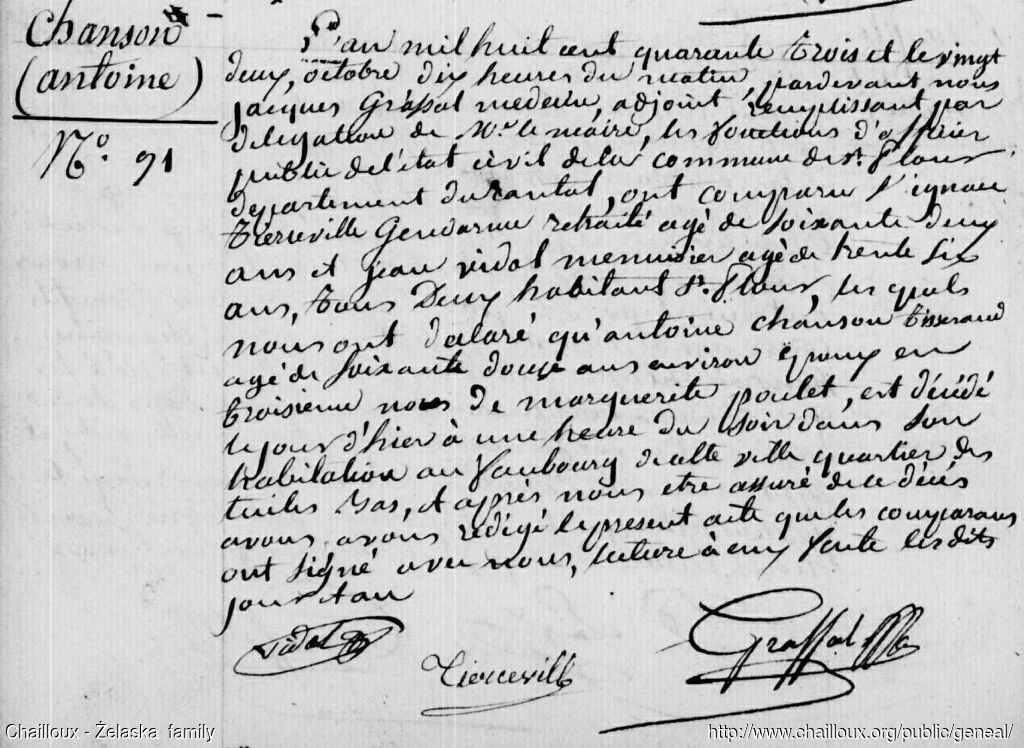 Chanson
(antoine)
N.° 91
L'an mil huit cent quarante trois et le vingt
deux, octobre dix heures du matin, pardevant nous
jacques Grassal medecin, adjoint, remplissant par
délégation de Mr. le maire, les fonctions d'officier
public de l'état civil de la commune de St. flour
departement du cantal, ont comparu s.r ignace
tierceville Gendarme retraité agé de soixante deux
ans et jean vidal menuisier agé de trente six
ans, tous Deux habitant St. flour, les quels
nous ont declaré qu'antoine chanson tisserand
agé de soixante douze ans environ Epoux en
troisieme noces de marguerite poulet, est décédé
le jour d'hier à une heure du soir dans son
habitation au faubourg de cette ville quartier des
tuiles bas, et après nous etre assuré de ce décès
avons, avons rédigé le present acte que les comparans
ont signé avec nous, lecture à eux faite les dits
jour et an
Vidal
Tierceville
Grassal
Chailloux - Żelaska family
http://www.chailloux.org/public/geneal/